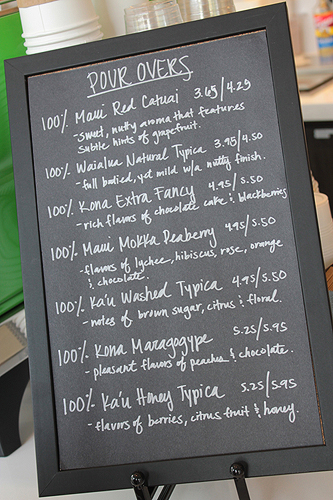 POUR OVERS
100% Maui Red Catuai 3.65/4.29
-sweet, nutty aroma that features
subtle hints of grapefruit.
100% Waialua Natural Typica 3.95/4.50
-full bodied, yet mild w/a nutty finish.
100% Kona Extra Fancy 4.95/5.50
-rich flavors of chocolate cake & blackberries
100% Maui Mokka Peaberry 4.95/5.50
-flavors of lychee, hibiscus, rose, orange
& chocolate.
100% Ka'u Washed Typica 4.95/5.50
-notes of brown sugar, citrus & floral.
100% Kona Maragogype 5.25/5.95
-pleasant flavors of peaches & chocolate.
100% Ka'u Honey Typica 5.25/5.95
-flavors of berries, citrus fruit & honey.